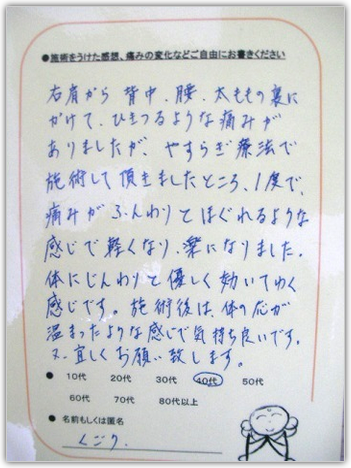 ●施術をうけた感想、痛みの変化などご自由にお書きください
右肩から背中、腰、太ももの裏に
かけて、ひきつるような痛みが
ありましたが、やすらぎ療法で
施術して頂きましたところ、1度で、
痛みがふんわりとほぐれるような
感じで軽くなり、楽になりました。
体にじんわりと優しく効いてゆく
感じです。施術後は、体の芯が
温まったような感じで気持ち良いです。
又、宜しくお願い致します。
● 10代 20代 30代 40代 50代
60代 70代 80代以上
● 名前もしくは匿名